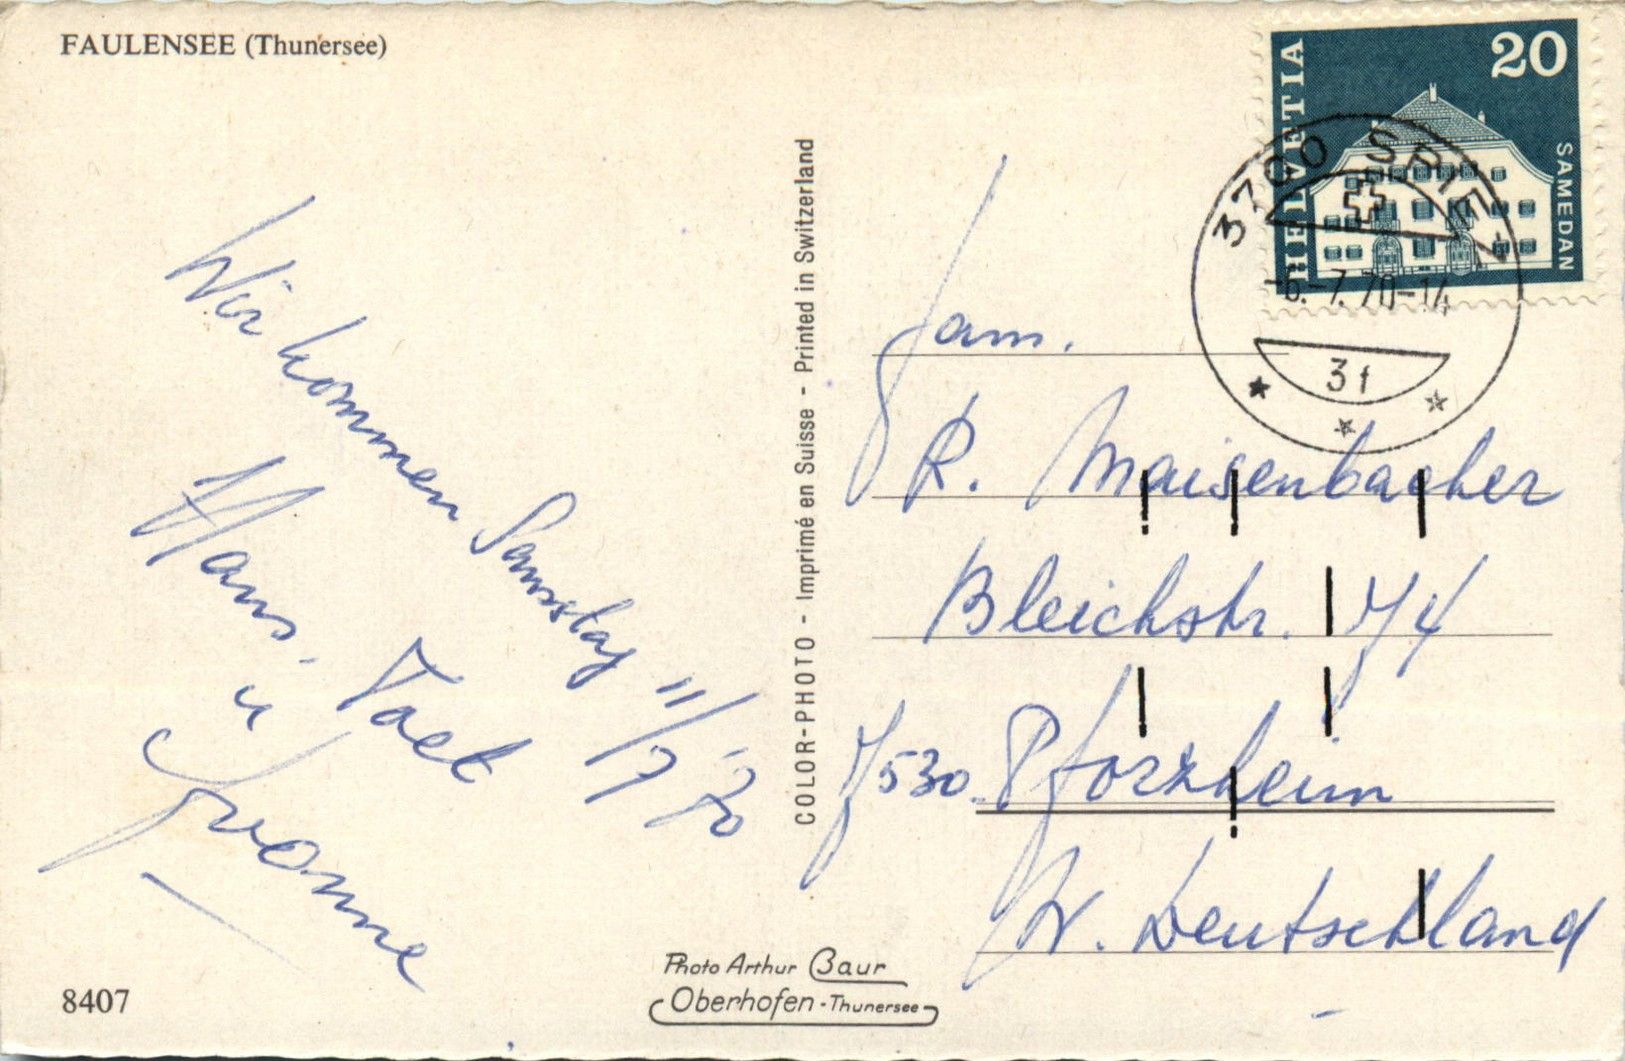 FAULENSEE (Thunersee)
Wir kommen Samstag 11/7 '70
Hans.
u
Yvonne
8407
COLOR-PHOTO - Imprimé en Suisse - Printed in Switzerland
Photo Arthur Baur
Oberhofen - Thunersee
HELVETIA
20
SAMEDAN
3700 SPIEZ
-6.-7.70-14
3f
Fam.
R. Maisenbacher
Bleichstr. 74
7530. Pforzheim
W. Deutschland